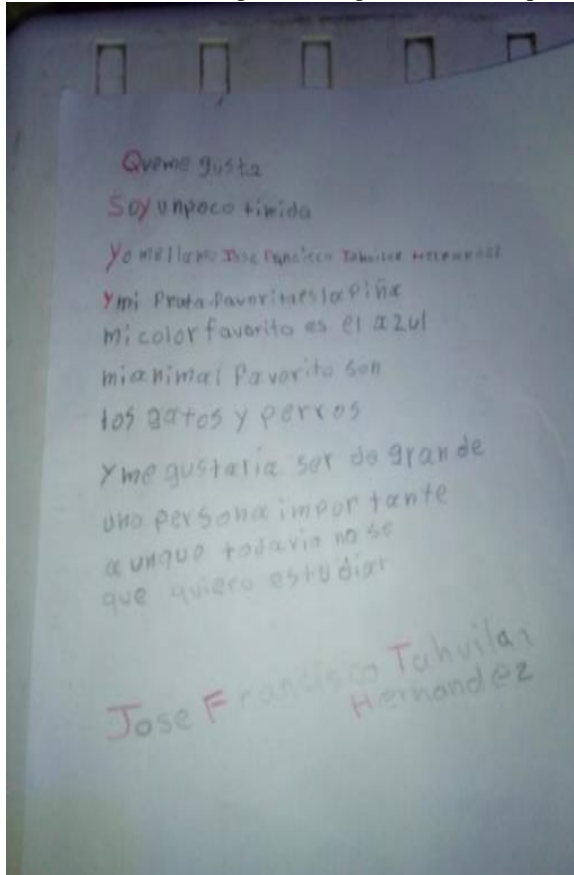 Queme gusta
Soy unpoco timida
Yo mellamo Jose Francisco Tahuilan Hernandez
Y mi Fruta Favorita es la piña
mi color favorito es el azul
mi animal Favorito son
los gatos y perros
Y me gustaria ser de grande
una persona importante
aunque todavia no se
que quiero estudiar
Jose Francisco Tahuilan
Hernandez